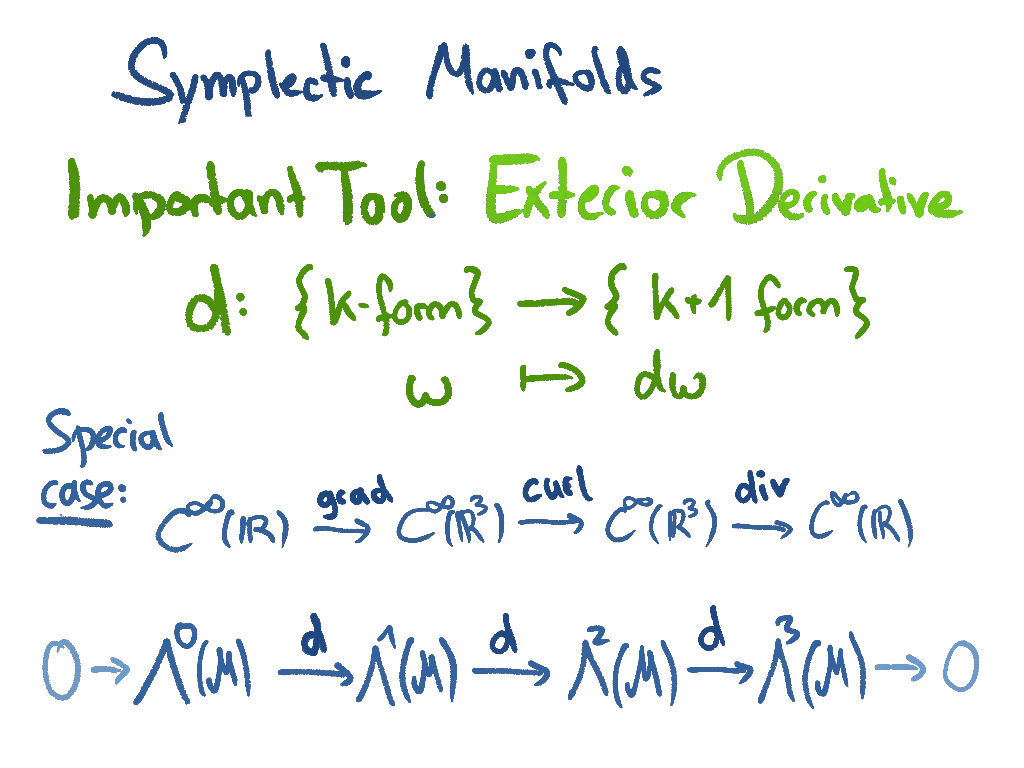 Symplectic Manifolds
Important Tool: Exterior Derivative
d: {k-form} → {k+1 form}
ω ↦ dω
Special
case:
C^∞(ℝ) grad→ C^∞(ℝ³) curl→ C^∞(ℝ³) div→ C^∞(ℝ)
0 → Λ⁰(M) d→ Λ¹(M) d→ Λ²(M) d→ Λ³(M) → 0